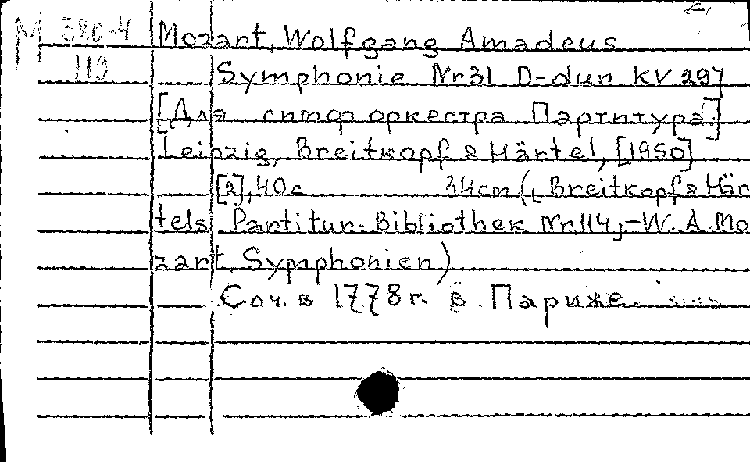 М 380-4 Mozart, Wolfgang Amadeus
110 Symphonie Nr 31 D-dur KV 297
[Для симф оркестра Партитура.]
Leipzig, Breitkopf & Härtel, [1950]
[2], 40 с 34 cm (Breitkopf & Här
tels Partitur-Bibliothek Nr. 114,-W. A. Mo
zart. Symphonien)
Соч. в 1778 г. в Париже